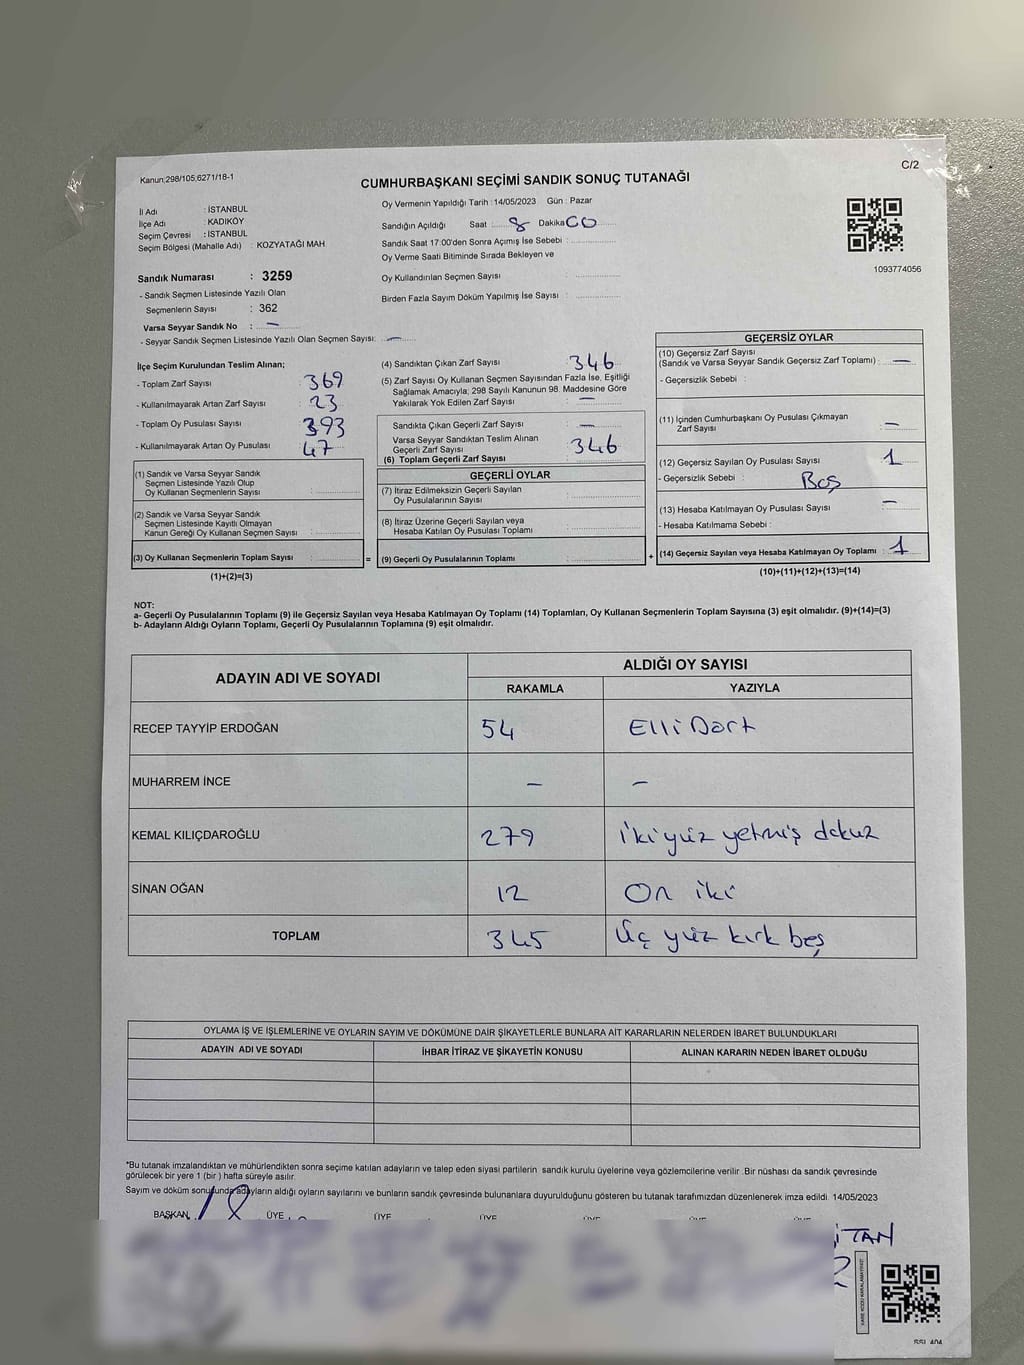 C/2
Kanun:298/105,6271/18-1
CUMHURBAŞKANI SEÇİMİ SANDIK SONUÇ TUTANAĞI
İl Adı : İSTANBUL
İlçe Adı : KADIKÖY
Seçim Çevresi : İSTANBUL
Seçim Bölgesi (Mahalle Adı) : KOZYATAĞI MAH
Oy Vermenin Yapıldığı Tarih : 14/05/2023 Gün : Pazar
Sandığın Açıldığı Saat : 8 Dakika 00
Sandık Saat 17:00'den Sonra Açımış İse Sebebi :
Oy Verme Saati Bitiminde Sırada Bekleyen ve
Oy Kullandırılan Seçmen Sayısı :
Birden Fazla Sayım Döküm Yapılmış İse Sayısı :
1093774056
Sandık Numarası : 3259
- Sandık Seçmen Listesinde Yazılı Olan
Seçmenlerin Sayısı : 362
Varsa Seyyar Sandık No : —
- Seyyar Sandık Seçmen Listesinde Yazılı Olan Seçmen Sayısı: —
İlçe Seçim Kurulundan Teslim Alınan;
- Toplam Zarf Sayısı 369
- Kullanılmayarak Artan Zarf Sayısı 23
- Toplam Oy Pusulası Sayısı 393
- Kullanılmayarak Artan Oy Pusulası 47
(1) Sandık ve Varsa Seyyar Sandık
Seçmen Listesinde Yazılı Olup
Oy Kullanan Seçmenlerin Sayısı :
(2) Sandık ve Varsa Seyyar Sandık
Seçmen Listesinde Kayıtlı Olmayan
Kanun Gereği Oy Kullanan Seçmen Sayısı :
(3) Oy Kullanan Seçmenlerin Toplam Sayısı :
(1)+(2)=(3)
(4) Sandıktan Çıkan Zarf Sayısı : 346
(5) Zarf Sayısı Oy Kullanan Seçmen Sayısından Fazla İse, Eşitliği
Sağlamak Amacıyla; 298 Sayılı Kanunun 98. Maddesine Göre
Yakılarak Yok Edilen Zarf Sayısı : —
Sandıkta Çıkan Geçerli Zarf Sayısı : —
Varsa Seyyar Sandıktan Teslim Alınan
Geçerli Zarf Sayısı : 346
(6) Toplam Geçerli Zarf Sayısı
GEÇERLİ OYLAR
(7) İtiraz Edilmeksizin Geçerli Sayılan
Oy Pusulalarının Sayısı :
(8) İtiraz Üzerine Geçerli Sayılan veya
Hesaba Katılan Oy Pusulası Toplamı :
= (9) Geçerli Oy Pusulalarının Toplamı :
GEÇERSİZ OYLAR
(10) Geçersiz Zarf Sayısı
(Sandık ve Varsa Seyyar Sandık Geçersiz Zarf Toplamı) : —
- Geçersizlik Sebebi :
(11) İçinden Cumhurbaşkanı Oy Pusulası Çıkmayan
Zarf Sayısı : —
(12) Geçersiz Sayılan Oy Pusulası Sayısı : 1
- Geçersizlik Sebebi : Boş
(13) Hesaba Katılmayan Oy Pusulası Sayısı : —
- Hesaba Katılmama Sebebi :
+ (14) Geçersiz Sayılan veya Hesaba Katılmayan Oy Toplamı : 1
(10)+(11)+(12)+(13)=(14)
NOT:
a- Geçerli Oy Pusulalarının Toplamı (9) ile Geçersiz Sayılan veya Hesaba Katılmayan Oy Toplamı (14) Toplamları, Oy Kullanan Seçmenlerin Toplam Sayısına (3) eşit olmalıdır. (9)+(14)=(3)
b- Adayların Aldığı Oyların Toplamı, Geçerli Oy Pusulalarının Toplamına (9) eşit olmalıdır.
ADAYIN ADI VE SOYADI
ALDIĞI OY SAYISI
RAKAMLA YAZIYLA
RECEP TAYYİP ERDOĞAN 54 Elli Dört
MUHARREM İNCE — —
KEMAL KILIÇDAROĞLU 279 İki yüz yetmiş dokuz
SİNAN OĞAN 12 On iki
TOPLAM 345 Üç yüz kırk beş
OYLAMA İŞ VE İŞLEMLERİNE VE OYLARIN SAYIM VE DÖKÜMÜNE DAİR ŞİKAYETLERLE BUNLARA AİT KARARLARIN NELERDEN İBARET BULUNDUKLARI
ADAYIN ADI VE SOYADI İHBAR İTİRAZ VE ŞİKAYETİN KONUSU ALINAN KARARIN NEDEN İBARET OLDUĞU
*Bu tutanak imzalandıktan ve mühürlendikten sonra seçime katılan adayların ve talep eden siyasi partilerin sandık kurulu üyelerine veya gözlemcilerine verilir .Bir nüshası da sandık çevresinde
görülecek bir yere 1 (bir ) hafta süreyle asılır.
Sayım ve döküm sonucunda adayların aldığı oyların sayılarını ve bunların sandık çevresinde bulunanlara duyurulduğunu gösteren bu tutanak tarafımızdan düzenlenerek imza edildi. 14/05/2023
BAŞKAN ÜYE ÜYE ÜYE ÜYE ÜYE ÜYE